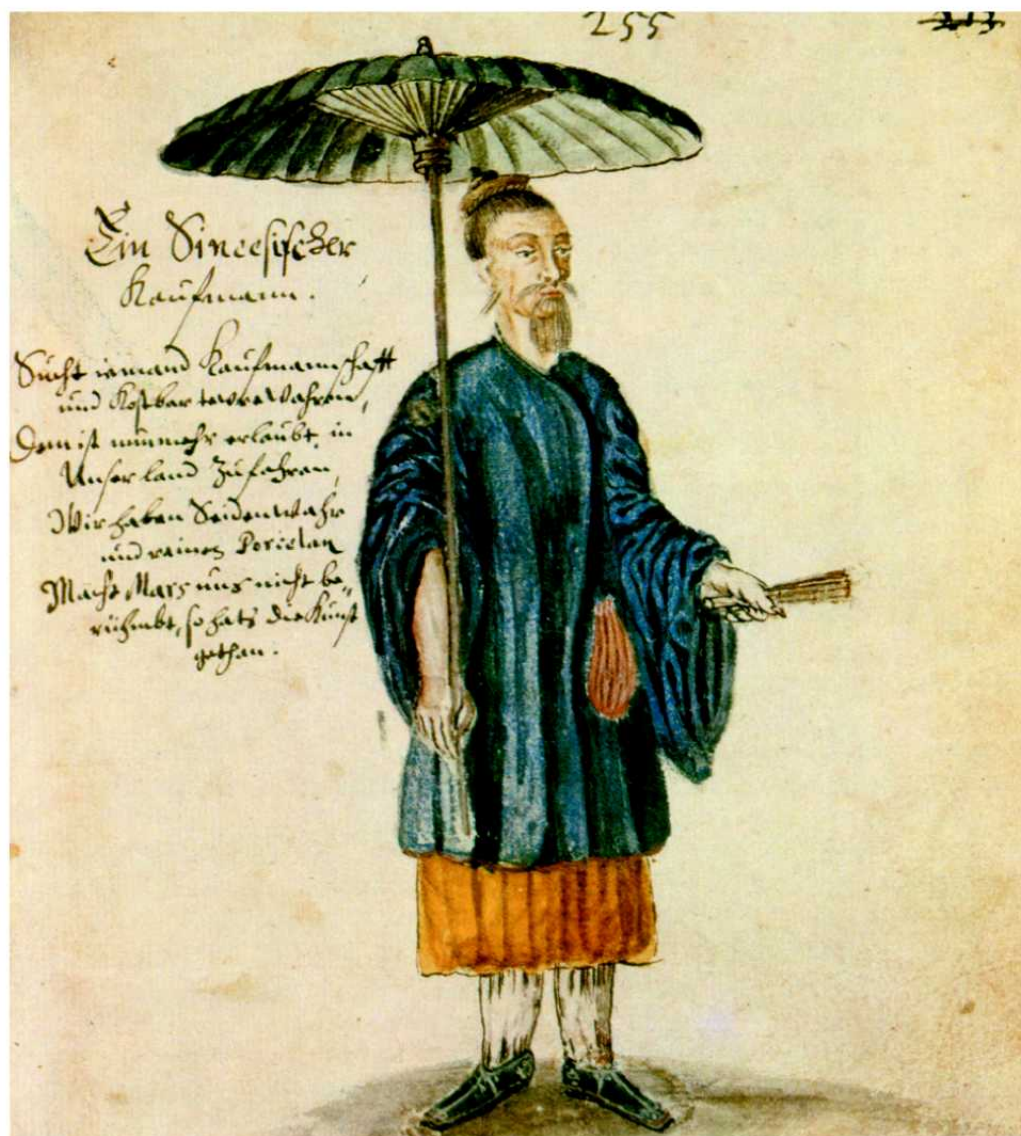 255
Ein Sineesischer
Kaufmann.
Sucht iemand Kaufmannschafft
und Kostbar tewre Wahren,
Dem ist nunmehr erlaubt, in
Unser land Zufahren,
Wir haben Seidenwahr
und reinen Porcelan
Macht Mars uns nicht be-
rühmbt, so hats die Kunst
gethan.